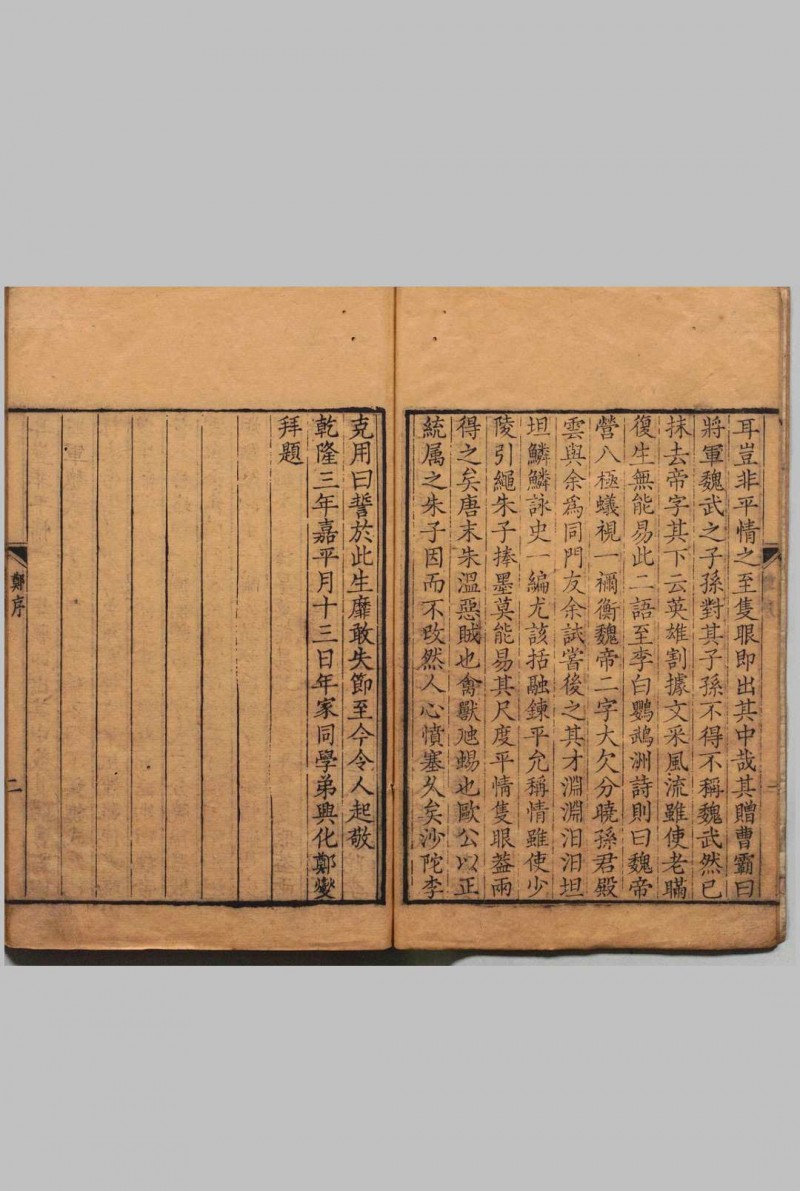 耳豈非平情之至隻眼即出其中哉其贈曹霸曰
將軍魏武之子孫對其子孫不得不稱魏武然已
抹去帝字其下云英雄割據文采風流雖使老瞞
復生無能易此二語至李白鸚鵡洲詩則曰魏帝
營八極蟻視一禰衡魏帝二字大欠分曉孫君殿
雲與余為同門友余試嘗後之其才淵淵汨汨坦
坦鱗鱗詠史一編尤該括融鍊平允稱情雖使少
陵引繩朱子捧墨莫能易其尺度平情隻眼葢兩
得之矣唐末朱溫惡賊也禽獸虺蜴也歐公以正
統属之朱子因而不改然人心憤塞久矣沙陀李
克用曰誓於此生靡敢失節至今令人起敬
乾隆三年嘉平月十三日年家同學弟興化鄭燮
拜題
鄭序
二